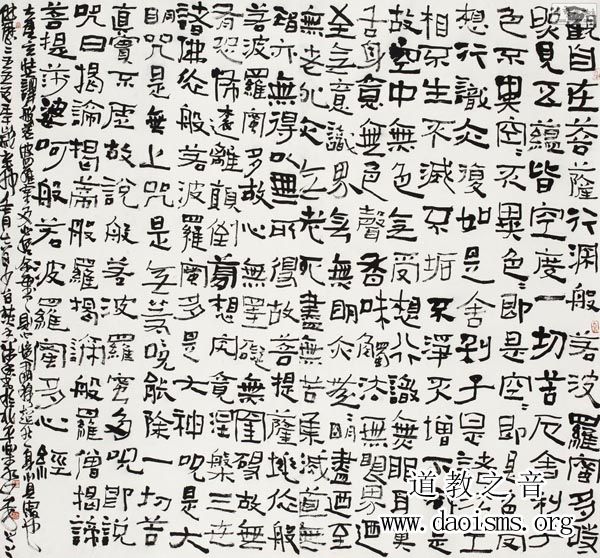 觀自在菩薩行深般若波羅蜜多時
照見五蘊皆空度一切苦厄舍利子
色不異空空不異色色即是空空即是色受
想行識亦復如是舍利子是諸法空
相不生不滅不垢不淨不增不減是
故空中無色無受想行識無眼耳鼻
舌身意無色聲香味觸法無眼界乃
至無意識界無無明亦無無明盡乃至
無老死亦無老死盡無苦集滅道無
智亦無得以無所得故菩提薩埵依般
若波羅蜜多故心無罣礙無罣礙故無
有恐怖遠離顛倒夢想究竟涅槃三世
諸佛依般若波羅蜜多是大神咒是大
明咒是無上咒是無等咒能除一切苦
真實不虛故說般若波羅蜜多咒即說
咒曰揭諦揭帝般羅揭諦般羅僧揭諦
菩提莎婆呵般若波羅蜜多心經
道教之音
www.daoisms.org